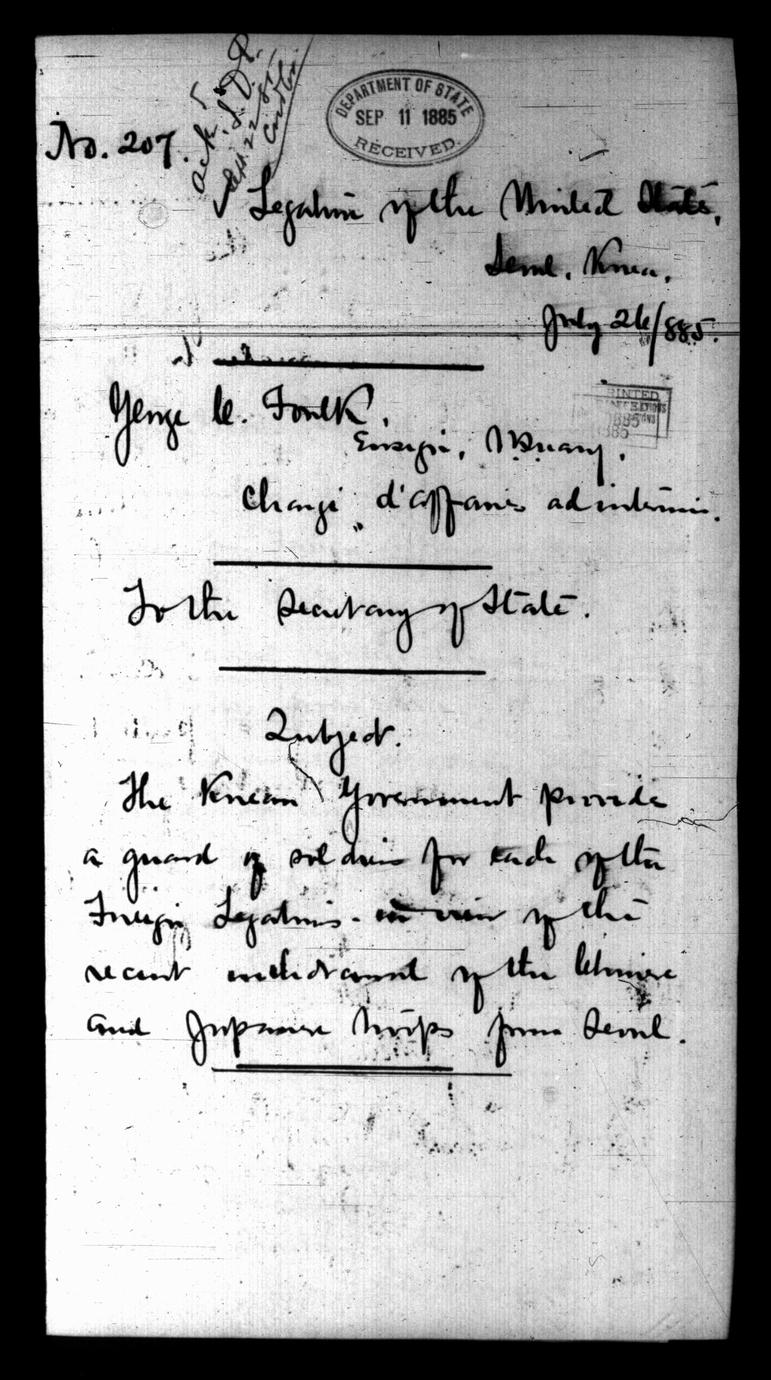 No. 207.
DEPARTMENT OF STATE
SEP 11 1885
RECEIVED.
Legation of the United States,
Seoul, Korea,
July 26/885.
George C. Foulk,
Ensign, U.S. Navy,
Chargé d'affaires ad interim.
To the Secretary of State.
Subject.
The Korean Government provide
a guard of soldiers for each of the
Foreign Legations - in view of the
recent withdrawal of the Chinese
and Japanese troops from Seoul.